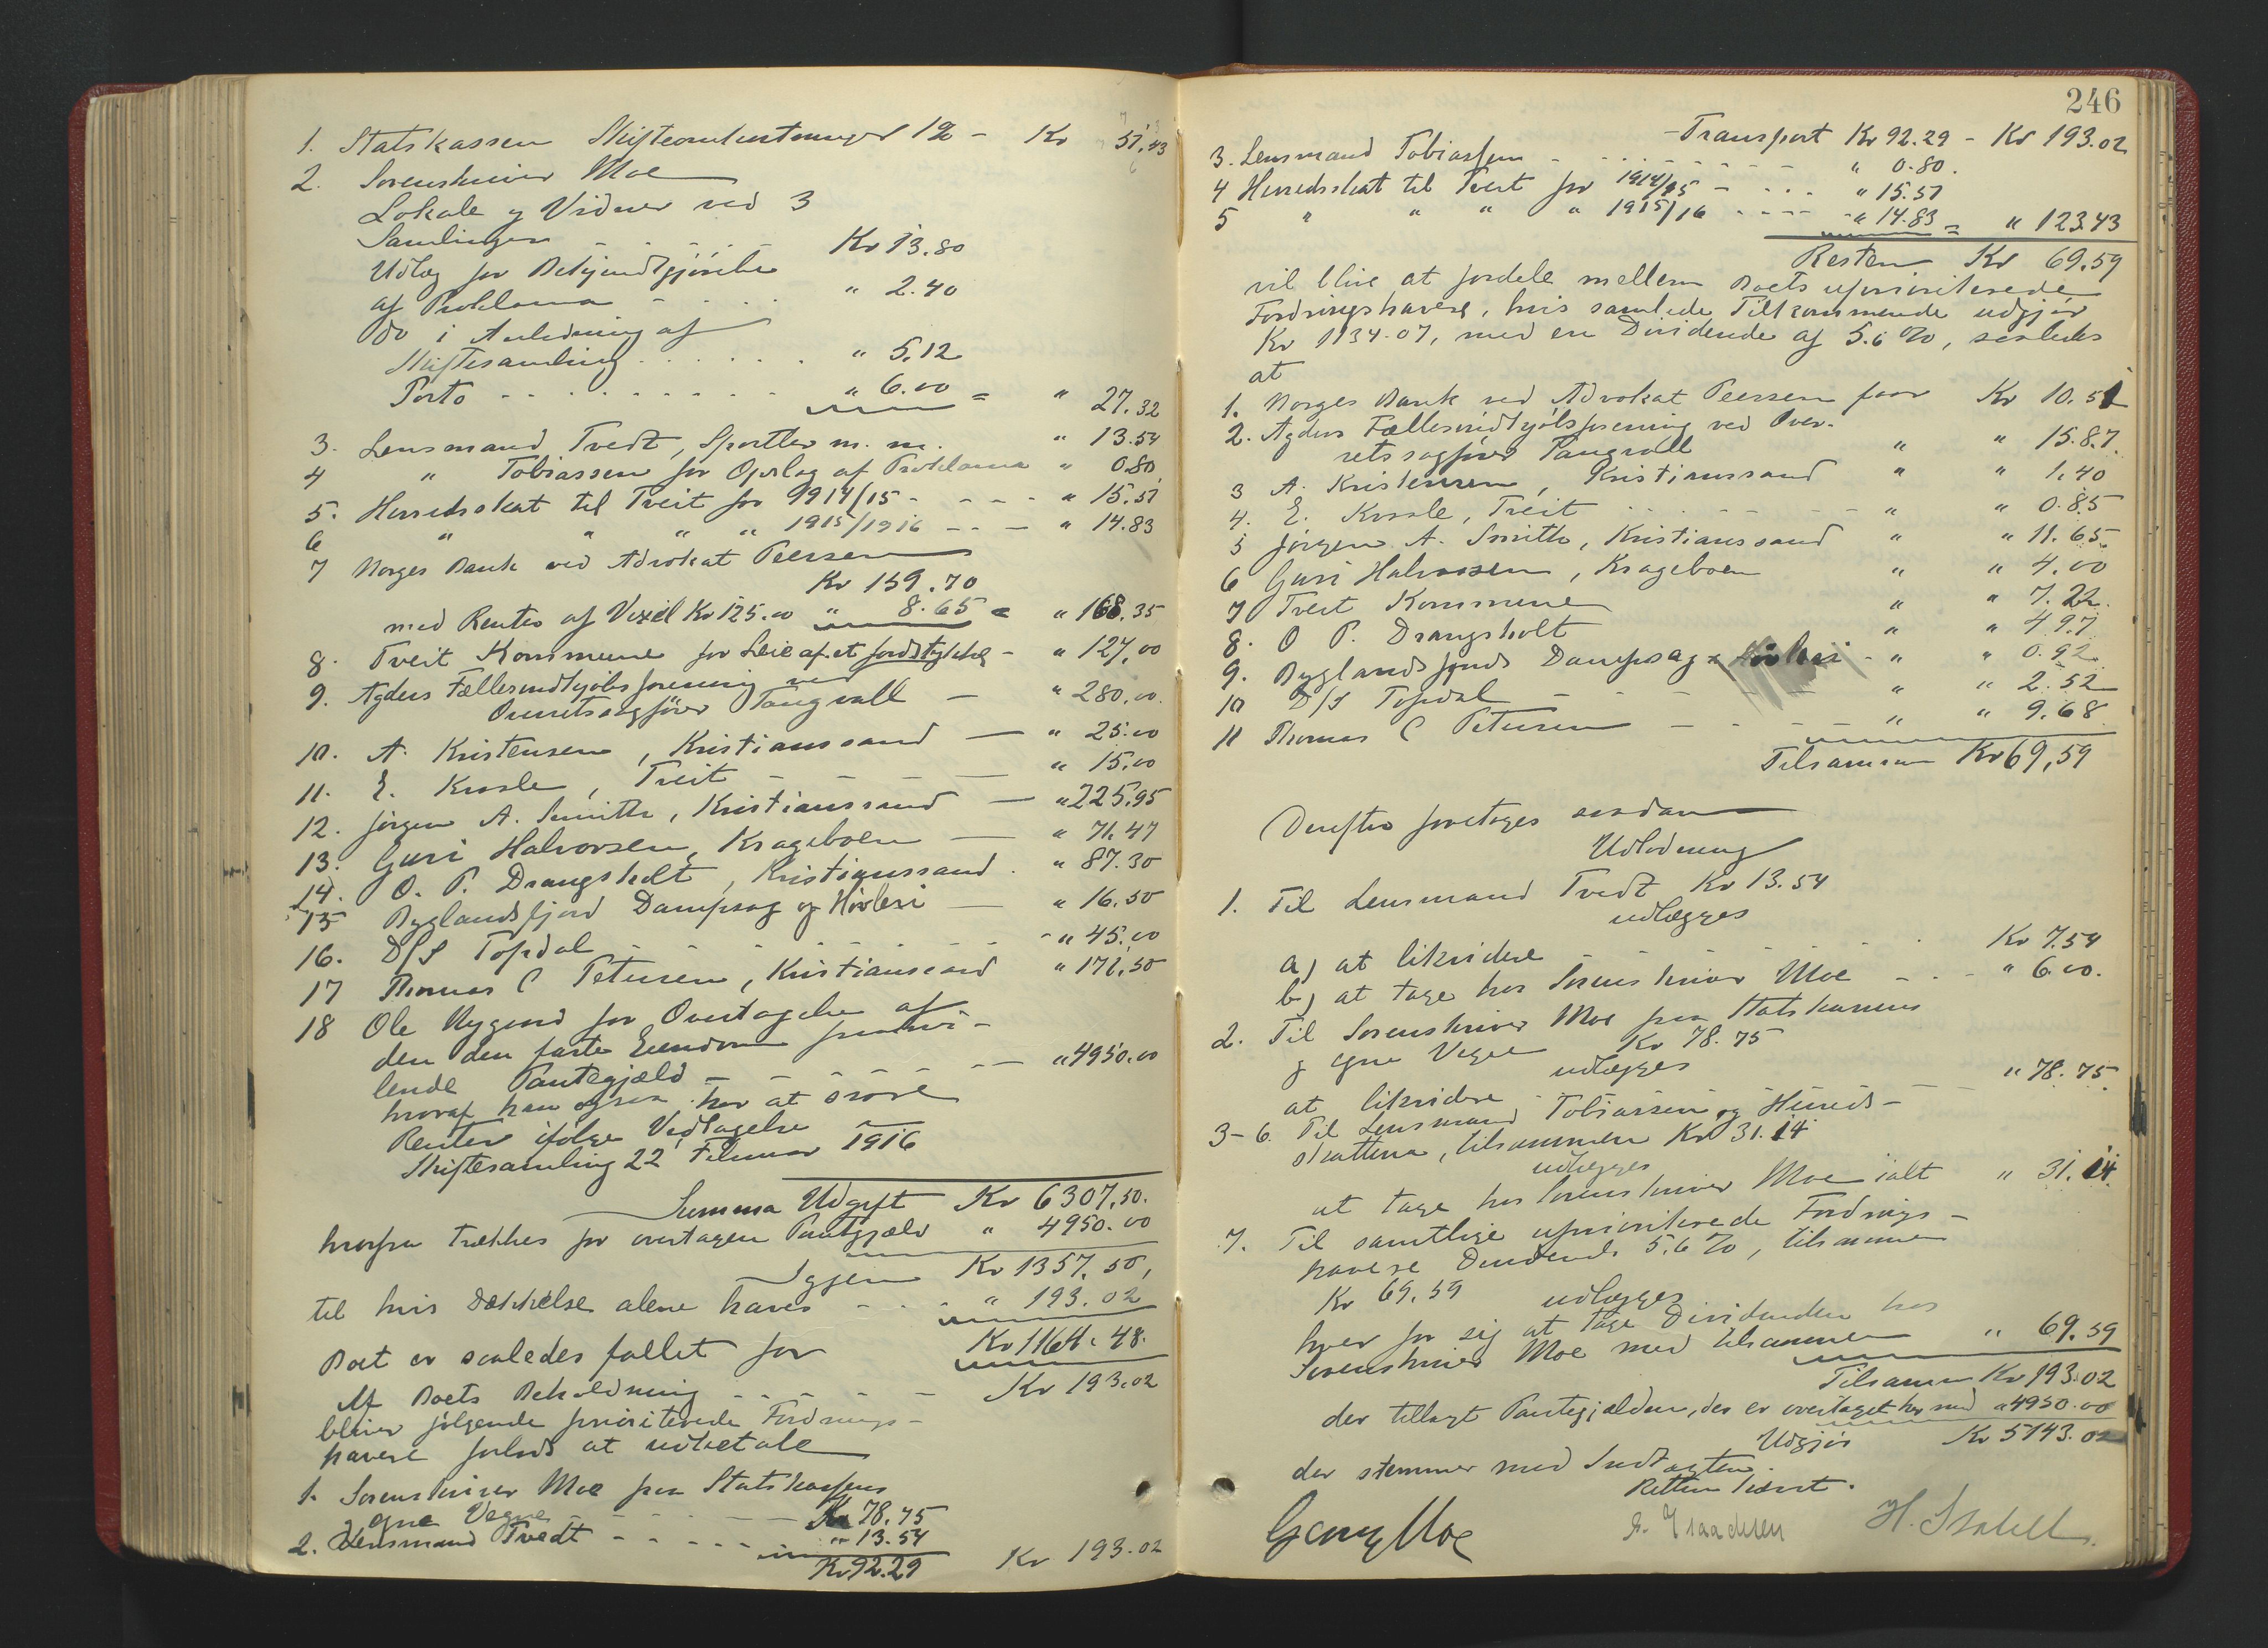 1. Statskassen Skifteomkostninger 1% - Kr 51,43
2. Sorenskriver Moe
Lokale og Vidner ved 3
Samlinger - - - - - Kr 13.80
Udlæg for Bekjendtgjørelse
af Proklama - - - - " 2.40
Do i Anledning af
Skiftesamling . . . . . . " 5.12
Porto - - - - - - - - - " 6.00 = " 27.32
3. Lensmand Tvedt, Sportler m. m. " 13.54
4 " Tobiassen for Opslag af Proklama " 0.80
5. Herredsskat til Tveit for 1914/15 - - - - " 15.51
6 " " " " 1915/1916 - - - " 14.83
7 Norges Bank ved Advokat Peersen
Kr 159.70
med Renter af Vexel Kr 125.00 " 8.65 = " 168.35
8. Tveit Kommune for Leie af et Jordstykke - " 127,00
9. Agders Fællesindkjøbsforening ved
Overretssagfører Tangvall - " 280,00.
10. A. Kristensen, Kristianssand - " 25.00
11. E. Krosle, Tveit - - - - " 15,00
12. Jørgen A. Smith, Kristianssand - " 225,95
13. Guri Halvorsen, Krageboen - " 71.47
14. O. P. Drangsholt, Kristianssand . " 87.30
15 Byglandsfjord Dampsag og Høvleri - " 16.50
16. D/S Topdal - - - - - - - " 45.00
17 Thomas C Petersen, Kristianssand " 172,50
18 Ole Nygend for Overtagelse af
den den faste Eiendom
lende Pantegjæld - - - - - - " 4950.00
hvoraf han ogsaa har at svare
Renter ifølge Vedtagelse
Skiftesamling 22 Februar 1916
Summa Udgift Kr 6307,50.
hvorfra trækkes for overtagen Pantgjæld " 4950.00
Igjen Kr 1357,50,
til hvis Dækkelse alene haves - - - " 193.02
Boet er saaledes fallet for Kr 1164.48.
Af Boets Beholdning - - - - - Kr 193.02
bliver følgende prioriterede Fordrings-
havere forlods at udbetale
1. Sorenskriver Moe paa Statskassens
og egne Vegne - - - - - - Kr 78.75
2. Lensmand Tvedt - - - - - " 13.54
Kr 92.29 Kr 193.02
246
- Transport Kr 92.29 - Kr 193.02
3. Lensmand Tobiassen - - - - - - - " 0.80.
4 Herredsskat til Tveit for 1914/15 - - - - " 15.51
5 " " " " 1915/16 - - - - " 14.83 = " 123.43
Resten Kr 69.59
vil blive at fordele mellem Boets uprioriterede
Fordringshavere, hvis samlede Tilkommende udgjør
Kr 1134.07, med en Dividende af 5.6 %, saaledes
at
1. Norges Bank ved Advokat Peersen faar Kr 10.51
2. Agders Fællesindkjøbsforening ved Over-
retssagfører Tangvall " " 15.87.
3 A. Kristensen, Kristianssand " " 1.40
4. E. Krosle, Tveit - - - - - " " 0.85
5 Jørgen A. Smith, Kristianssand " " 11.65
6 Guri Halvorsen, Krageboen " " 4.00
7 Tveit Kommune " " 7.22.
8. O P. Drangsholt " " 4.97
9. Byglandsfjords Dampsag & Høvleri - " " 0.92.
10 D/S Topdal - - - - - - " " 2.52
11 Thomas C Petersen - - - - - " " 9.68
Tilsammen Kr 69,59
Derefter foretoges saadan
Udlodning
1. Til Lensmand Tvedt Kr 13.54
udlægges
a) at likvidere - - - - - - - Kr 7.54
b) at tage hos Sorenskriver Moe - - - " 6.00.
2. Til Sorenskriver Moe paa Statskassens
og egne Vegne Kr 78.75
udlægges
at likvidere - - - - - - - " 78.75
3-6. Til Lensmand Tobiassen og Herreds-
skatterne, tilsammen Kr 31.14
udlægges
at tage hos Sorenskriver Moe ialt " 31.14
7. Til samtlige uprioriterede Fordrings-
havere Dividende 5.6 %, tilsammen
Kr 69.59 udlægges
hver for sig at tage Dividenden hos
Sorenskriver Moe med tilsammen " 69.59
Tilsammen Kr 193.02
der tillagt Pantegjælden, der er overtaget her med " 4950.00
Udgjør Kr 5143.02
der stemmer med Indtægten.
Retten hævet.
Georg Moe